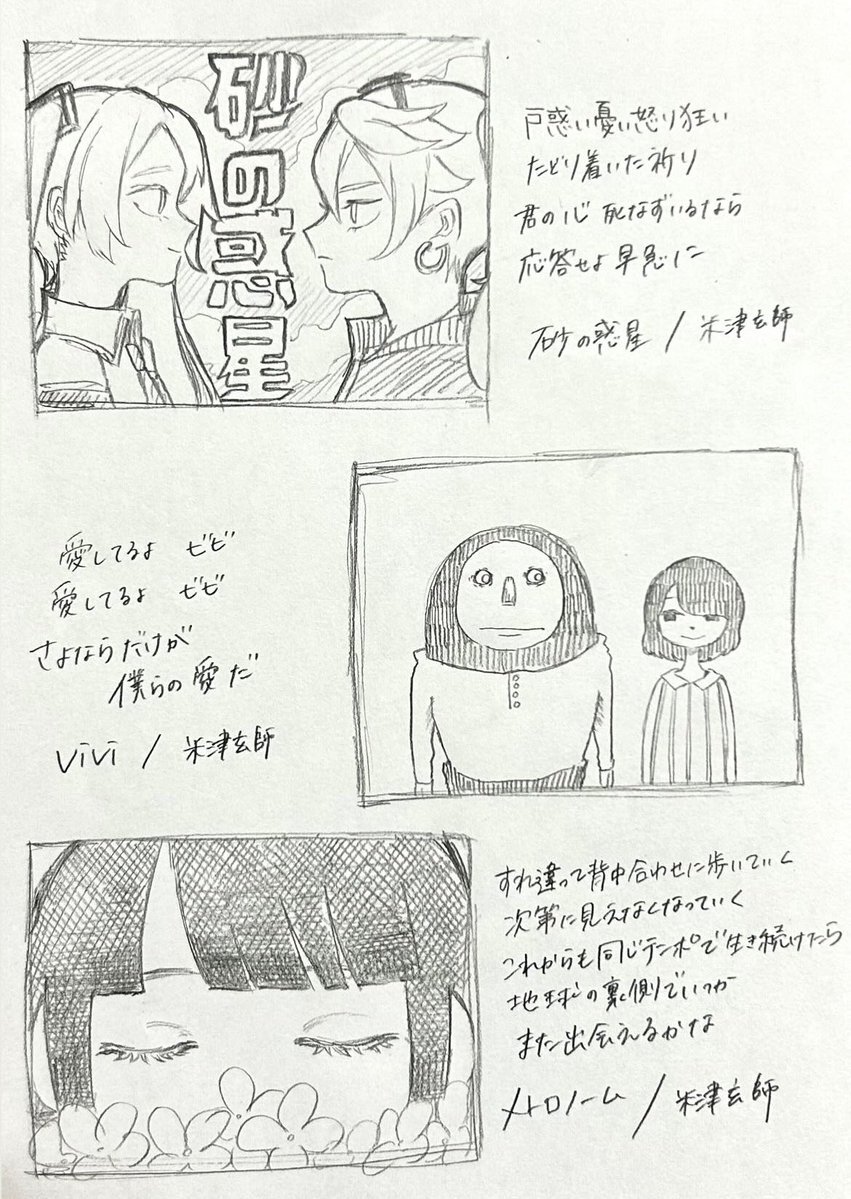 砂の惑星
戸惑い憂い怒り狂い
たどり着いた祈り
君の心死なずいるなら
応答せよ早急に
砂の惑星 / 米津玄師
愛してるよ ビビ
愛してるよ ビビ
さよならだけが
僕らの愛だ
vivi / 米津玄師
すれ違って背中合わせに歩いていく
次第に見えなくなっていく
これからも同じテンポで生き続けたら
地球の裏側でいつか
また出会えるかな
メトロノーム / 米津玄師